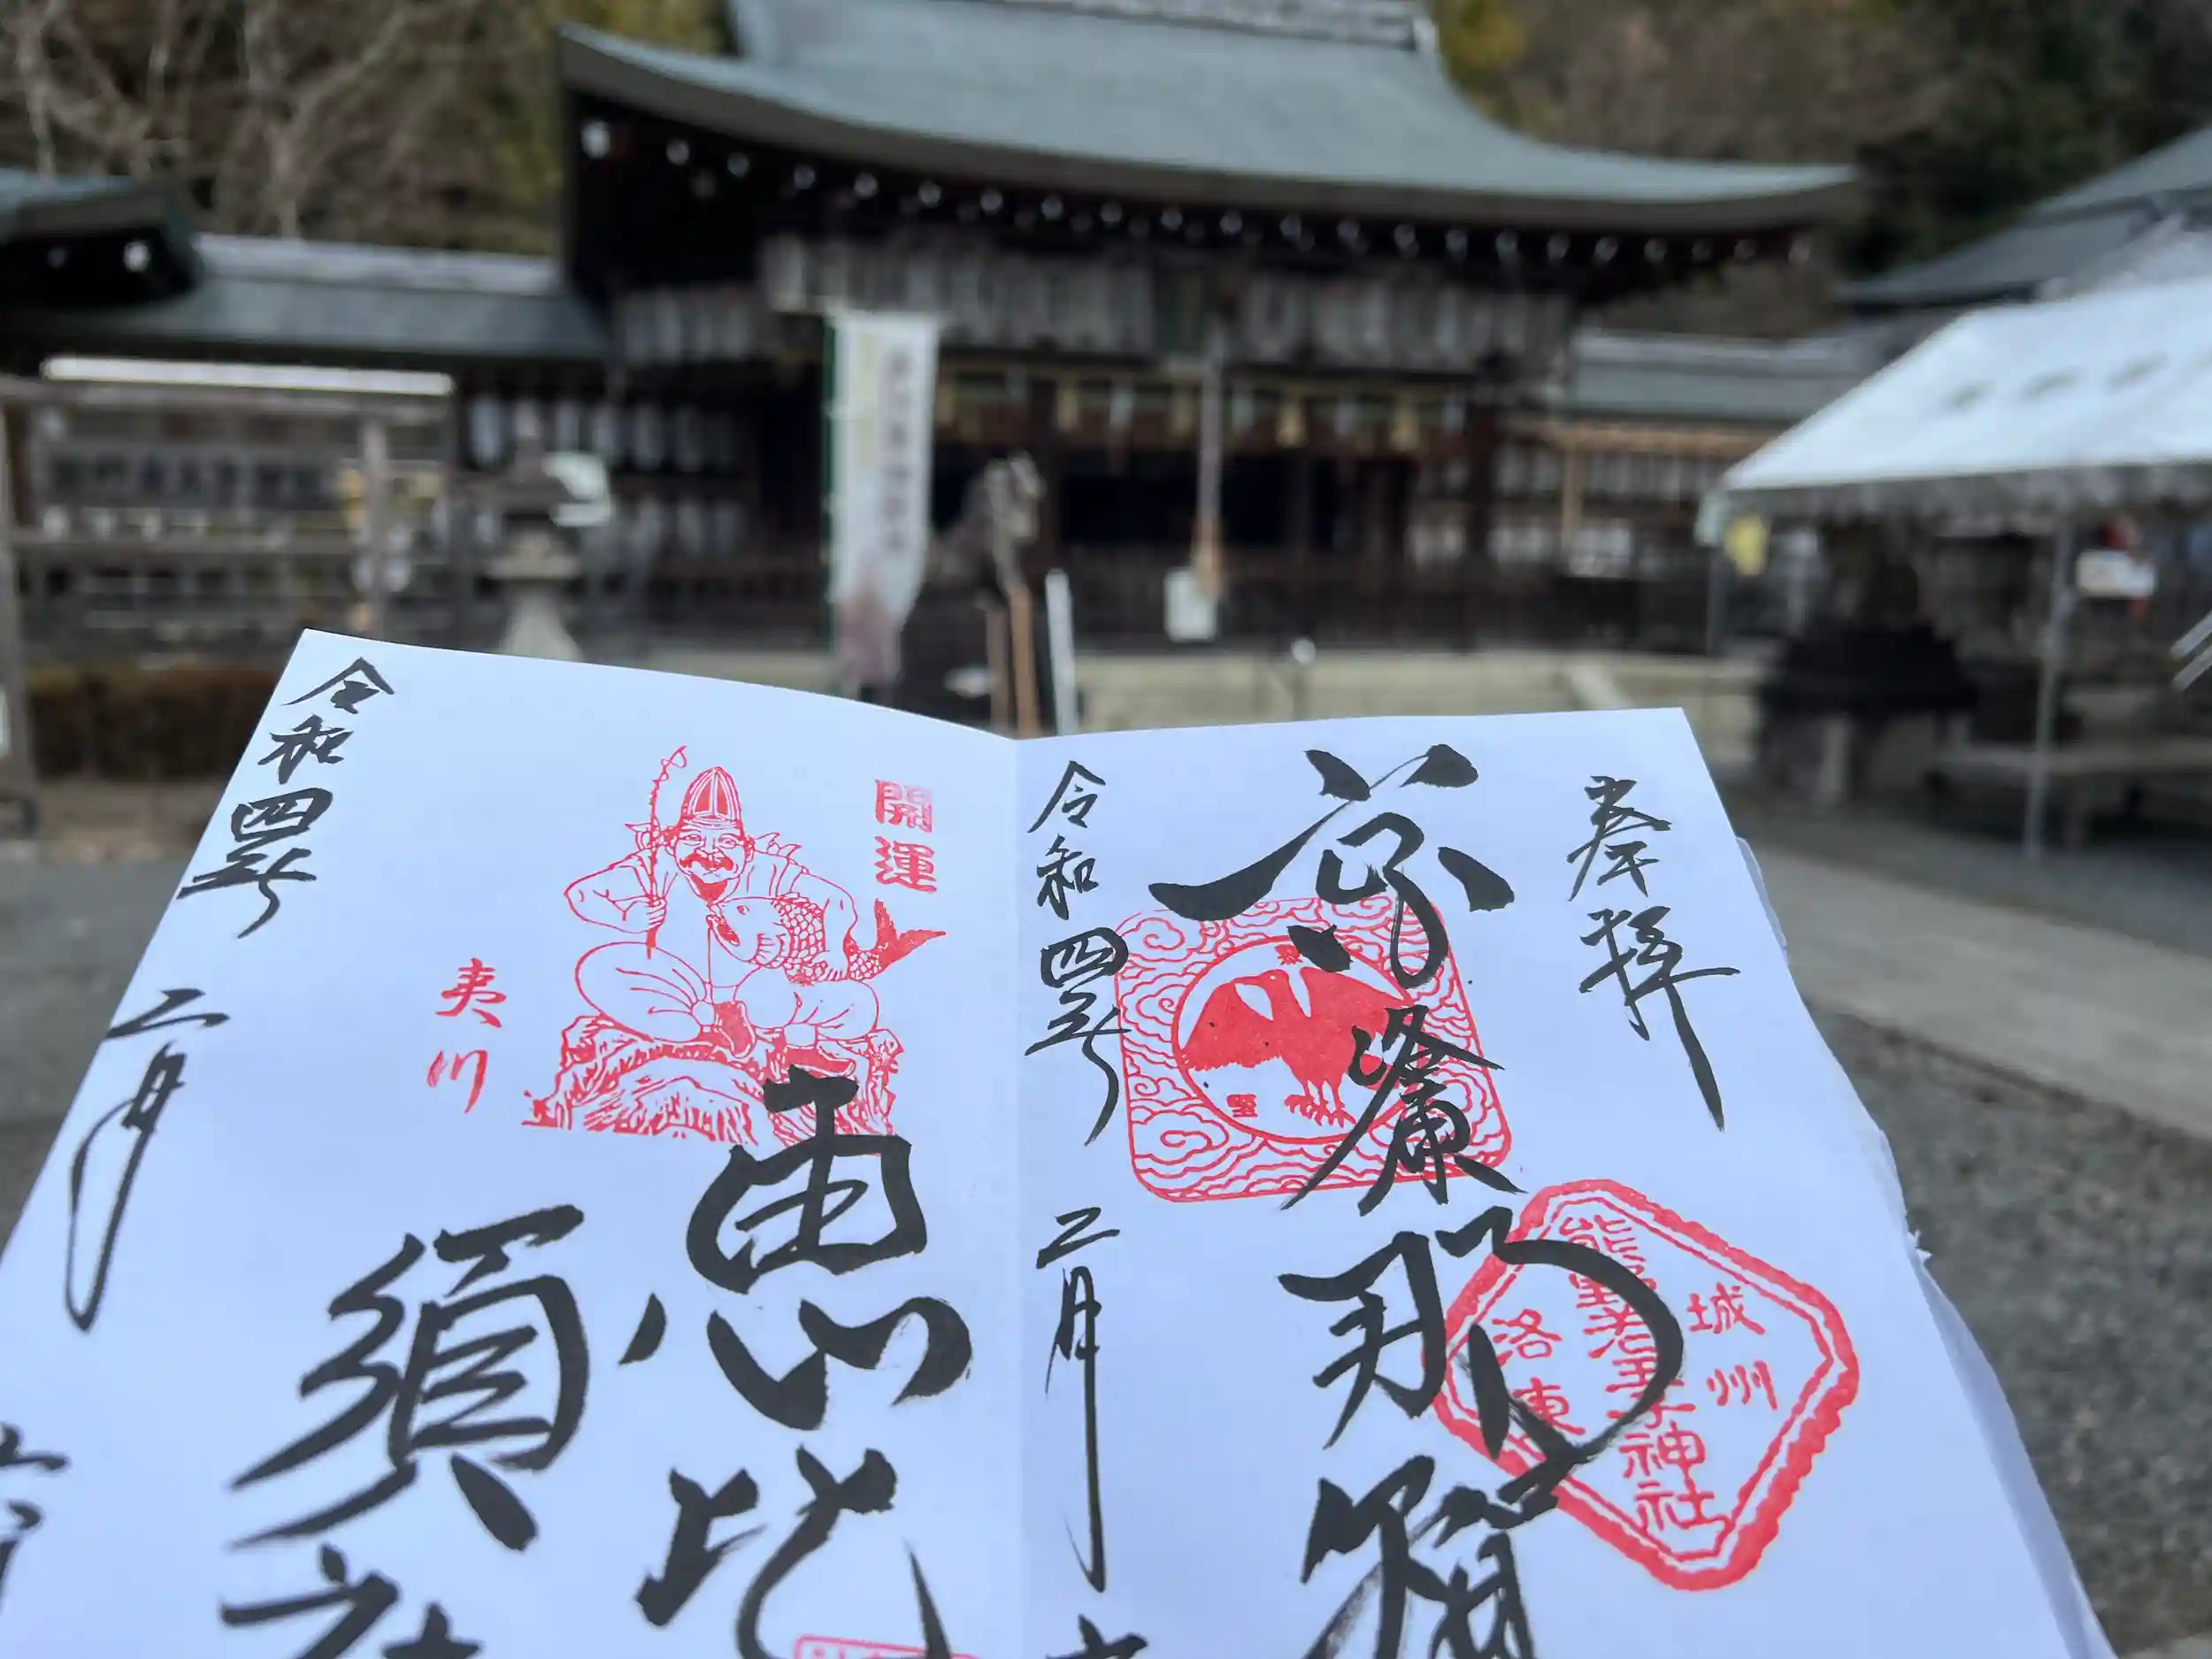 奉拝
京
那
城州
熊野若王子神社
洛東
令和四年 二月
開運
恵比
須社
夷川
令和四年 二月